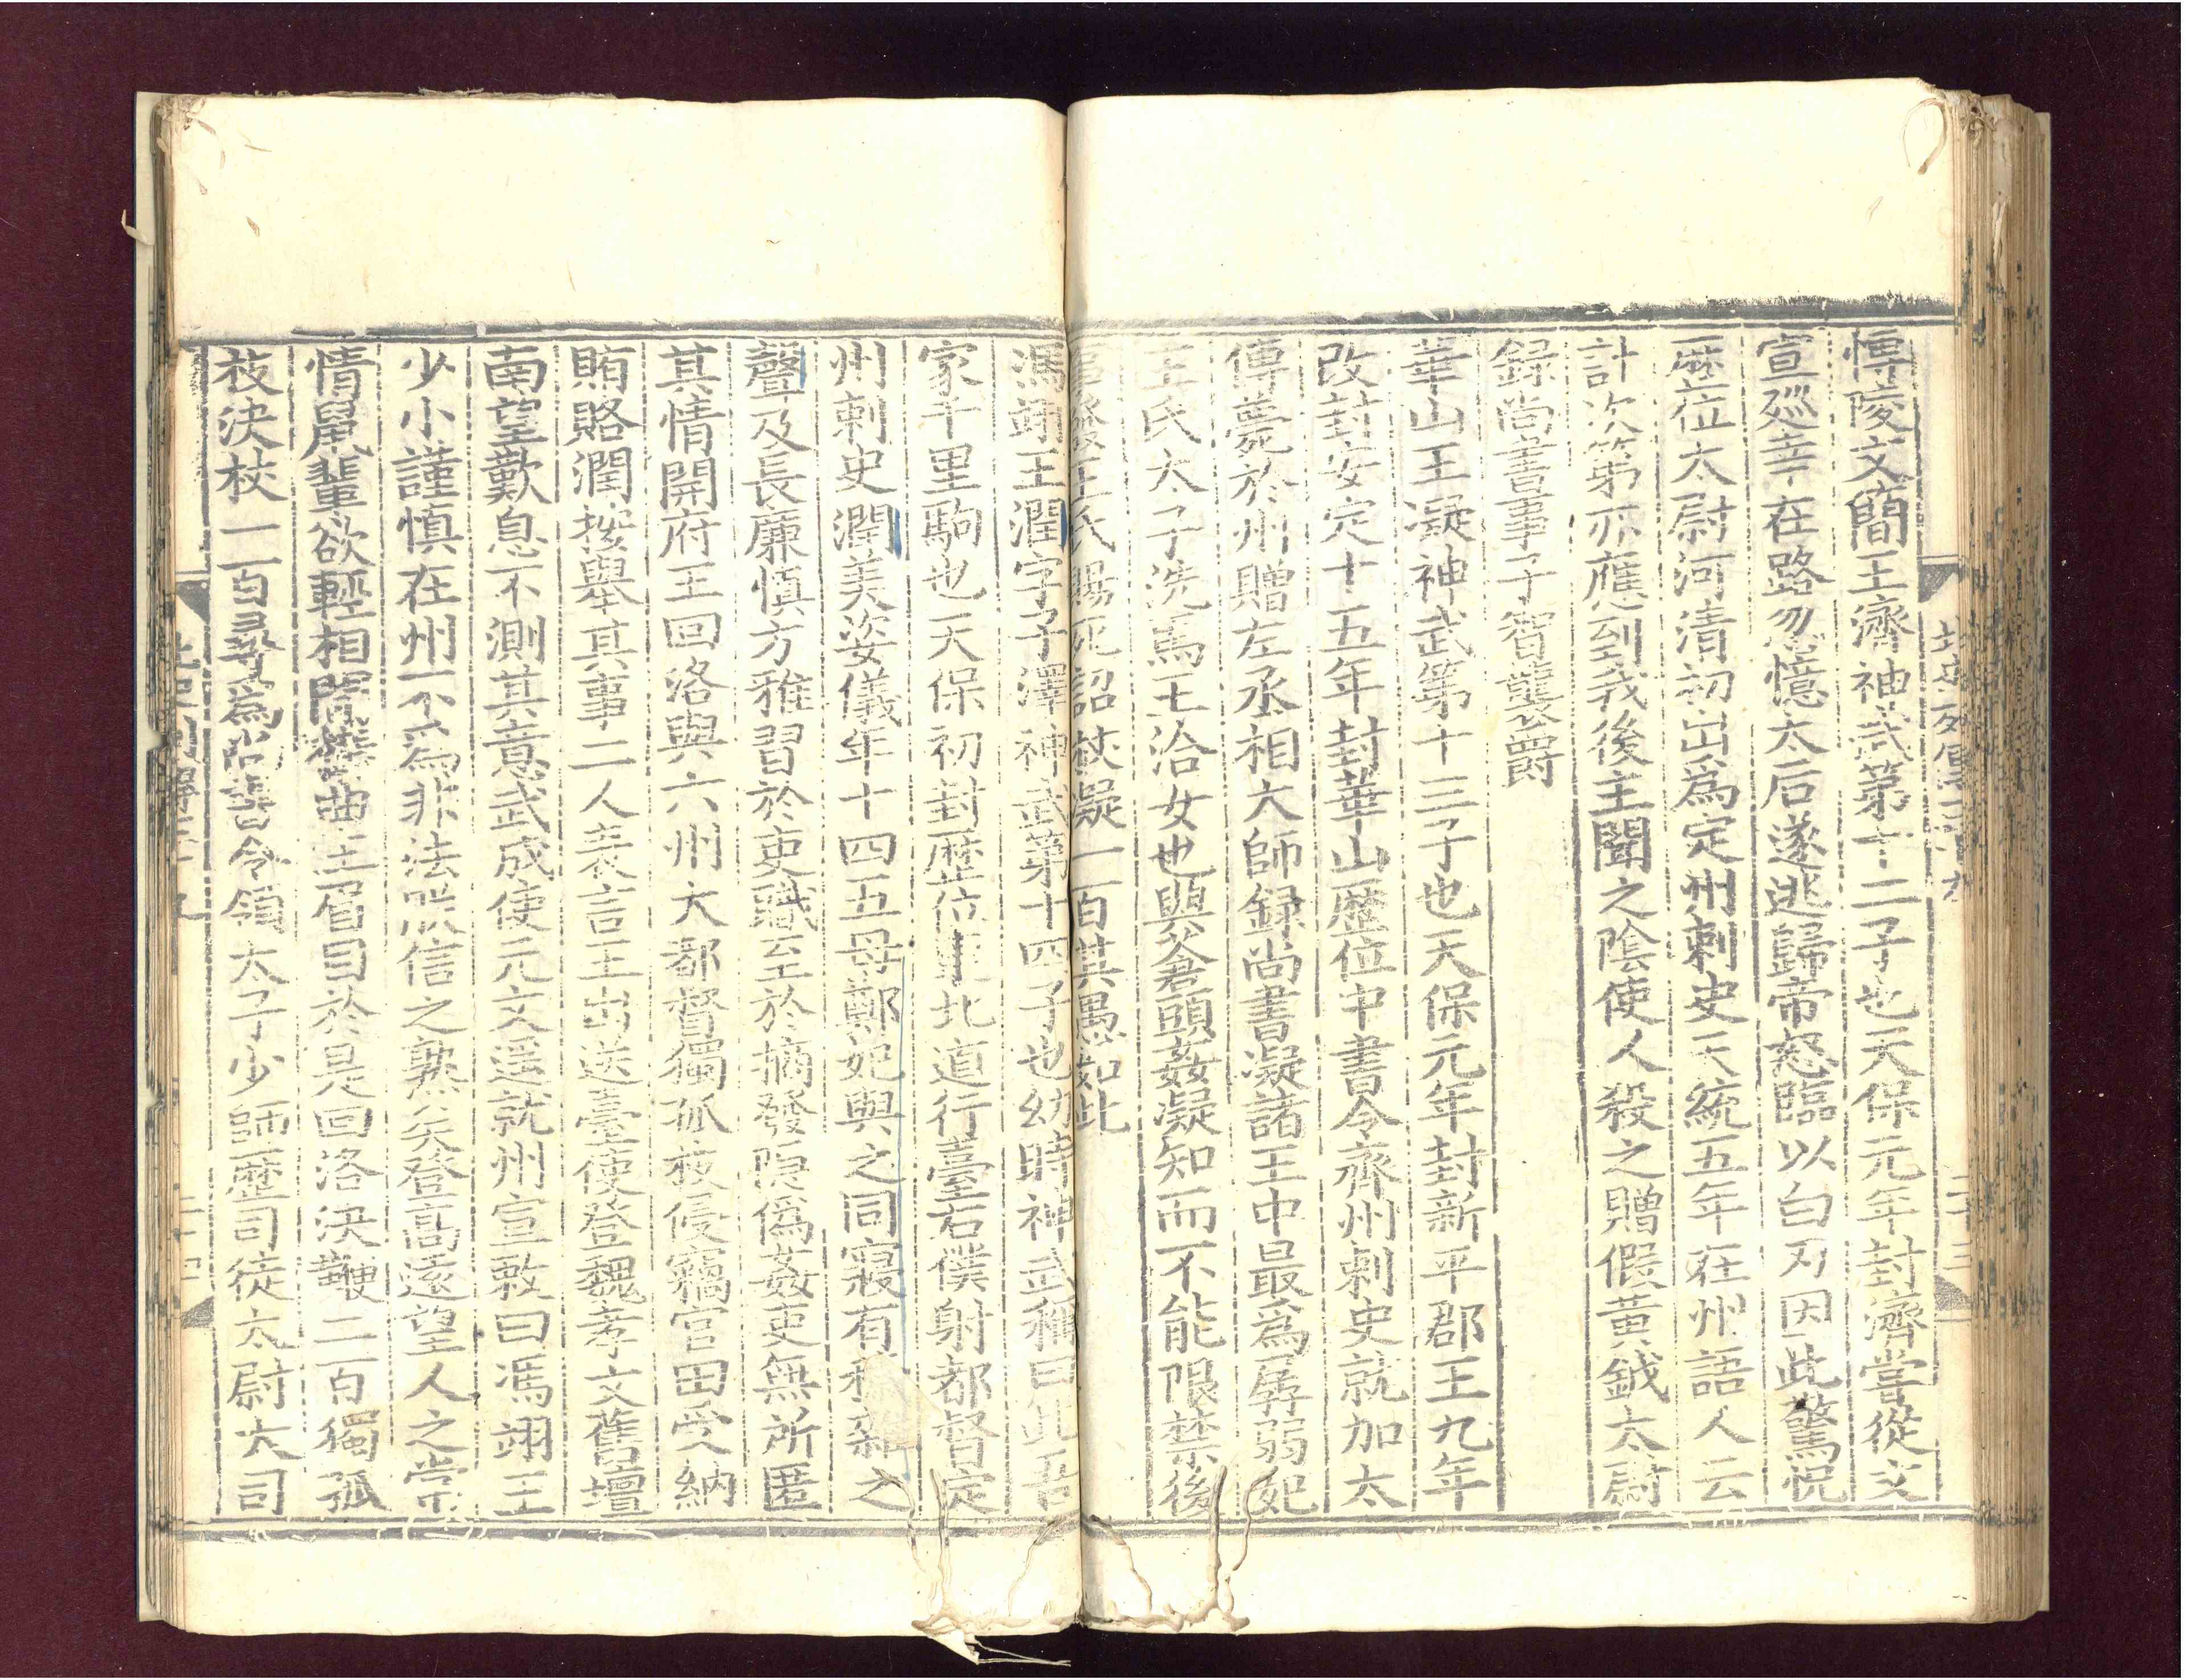 博陵文簡王濟神武第十二子也天保元年封濟嘗從文
宣廵幸在路忽憶太后遂逃歸帝怒臨以白刃因此驚怳
歷位太尉河清初出爲定州刺史天統五年在州語人云
計次第亦應到我後主聞之陰使人殺之贈假黄鉞太尉
録尚書事子智襲爵
華山王凝神武第十三子也天保元年封新平郡王九年
改封安定十五年封華山歷位中書令齊州刺史就加太
傅薨於州贈左丞相太師録尚書凝諸王中最爲孱弱妃
王氏太子洗馬王洽女也與蒼頭姦凝知而不能限禁後
事發王氏賜死詔杖凝一百其愚如此
馮翊王潤字子澤神武第十四子也幼時神武稱曰此吾
家千里駒也天保初封歷位東北道行臺右僕射都督定
州刺史潤美姿儀年十四五母鄭妃與之同寢有穢雜之
聲及長廉慎方雅習於吏職至於摘發隱僞姦吏無所匿
其情開府王回洛與六州大都督獨孤枝侵竊官田受納
賄賂潤按舉其事二人表言王出送臺使登魏孝文舊壇
南望歎息不測其意武成使元文遥就州宣敕曰馮翊王
少小謹慎在州不爲非法朕信之熟矣登高遠望人之常
情鼠輩欲輕相間構曲生眉目於是回洛決鞭二百獨孤
枝決杖一百尋爲尚書令領太子少師歷司徒太尉大司
北史列傳三十九
二十四